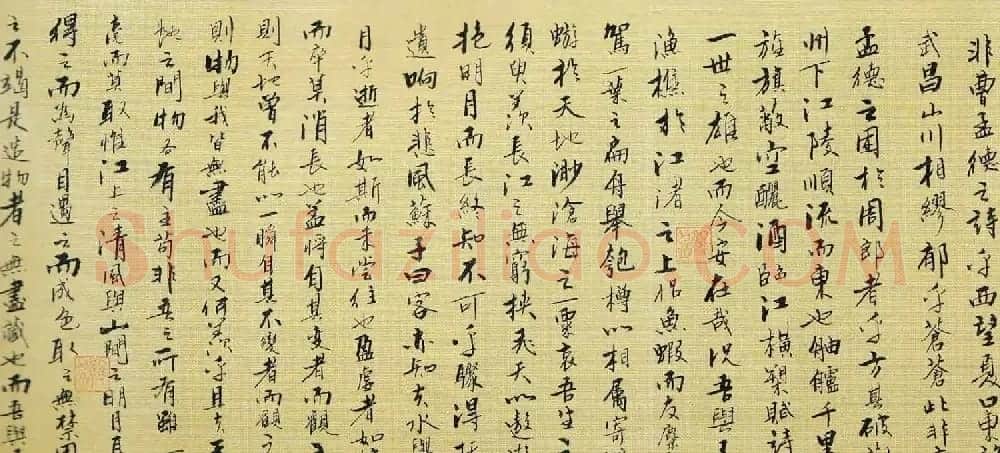 非曹孟德之詩乎西望夏口東
武昌山川相繆郁乎蒼蒼此非
孟德之困於周郎者乎方其破
州下江陵順流而東也舳艫千里
旌旗蔽空釃酒臨江橫槊賦詩
一世之雄也而今安在哉況吾與
漁樵於江渚之上侶魚蝦而友麋
駕一葉之扁舟舉匏樽以相屬寄
蝣於天地渺滄海之一粟哀吾生之
須臾羨長江之無窮挾飛天以遨
抱明月而長終知不可乎驟得
遺響於悲風蘇子曰客亦知夫水與
月乎逝者如斯而未嘗往也盈虛者如
而卒莫消長也蓋將自其變者而觀
則天地曾不能以一瞬自其不變者而觀之
則物與我皆無盡也而又何羨乎且夫
地之間物各有主苟非吾之所有雖
毫而莫取惟江上之清風與山間之明月
得之而為聲目遇之而成色取之無禁用
之不竭是造物者之無盡藏也而吾與
Shufaziliao.COM